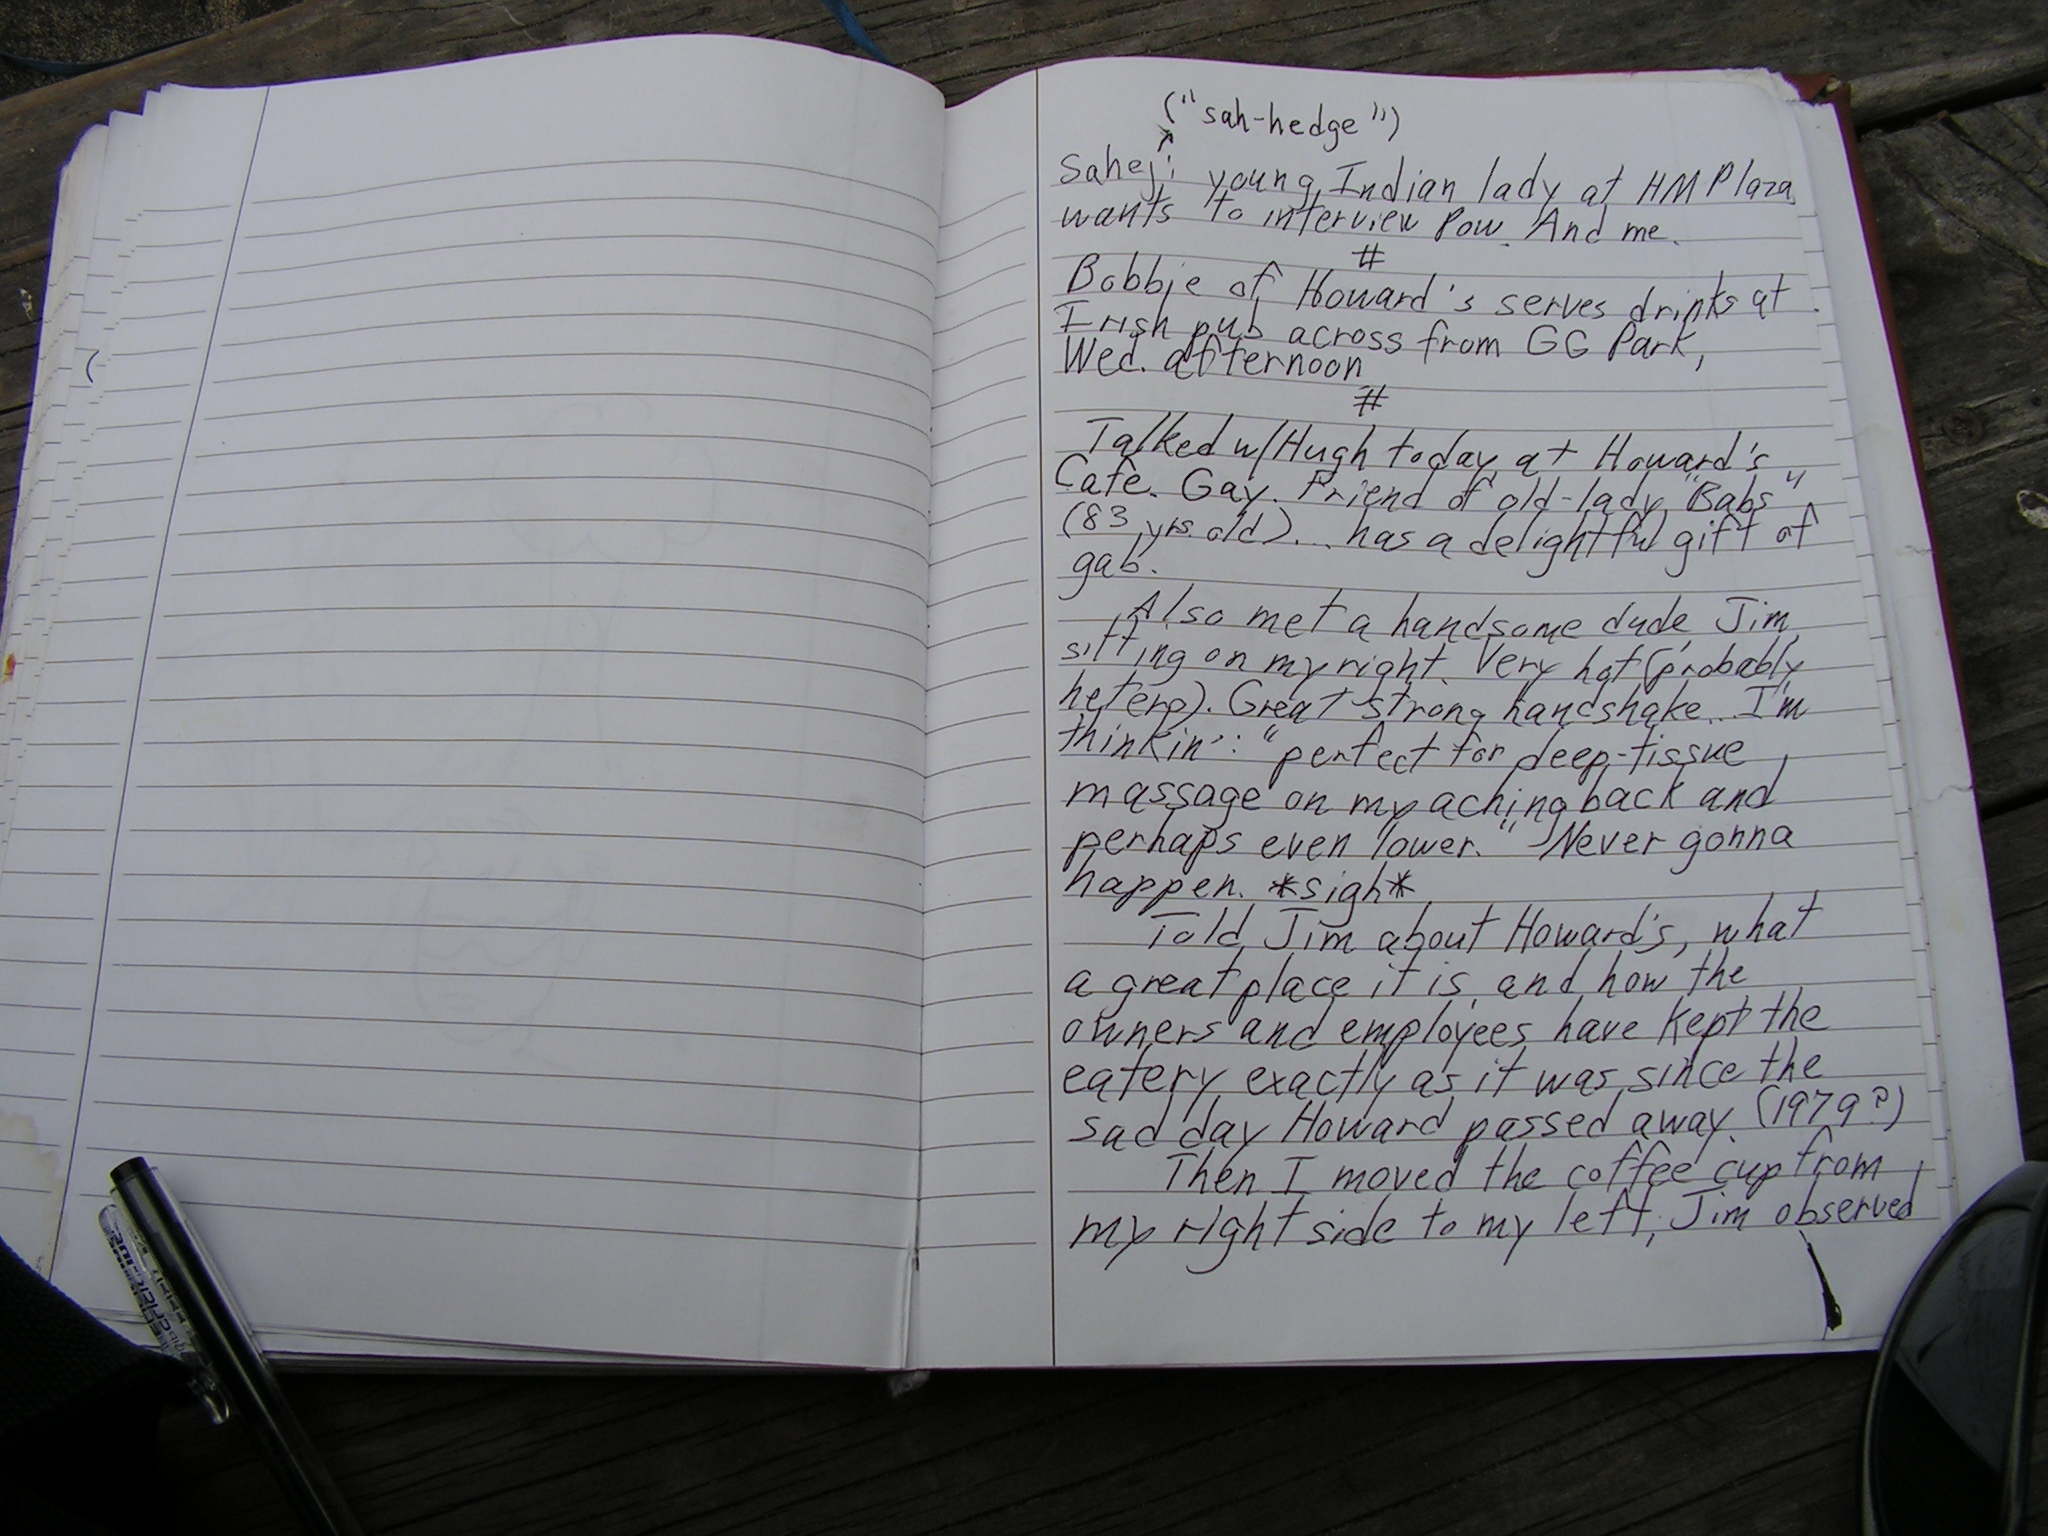 ("sah-hedge")
Sahej: young Indian lady at HM Plaza
wants to interview Pow. And me.
#
Bobbie of Howard's serves drinks at
Irish pub across from GG Park,
Wed. afternoon
#
Talked w/Hugh today at Howard's
Cafe. Gay. Friend of old-lady "Babs"
(83 yrs. old)... has a delightful gift of
gab.
Also met a handsome dude Jim,
sitting on my right. Very hot (probably
hetero). Great strong handshake... I'm
thinkin': "perfect for deep-tissue
massage on my aching back and
perhaps even lower." Never gonna
happen. *sigh*
Told Jim about Howard's, what
a great place it is, and how the
owners and employees have kept the
eatery exactly as it was since the
sad day Howard passed away. (1979?)
Then I moved the coffee cup from
my right side to my left, Jim observed